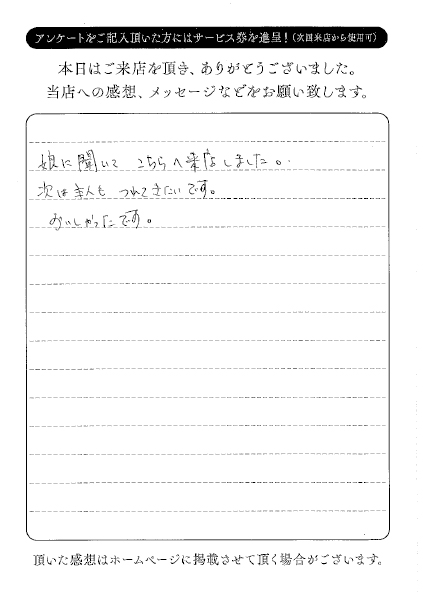 アンケートをご記入頂いた方にはサービス券を進呈！（次回来店から使用可）
本日はご来店を頂き、ありがとうございました。
当店への感想、メッセージなどをお願い致します。
娘に聞いて こちらへ来店しました。
次は主人も つれてきたいです。
おいしかったです。
頂いた感想はホームページに掲載させて頂く場合がございます。